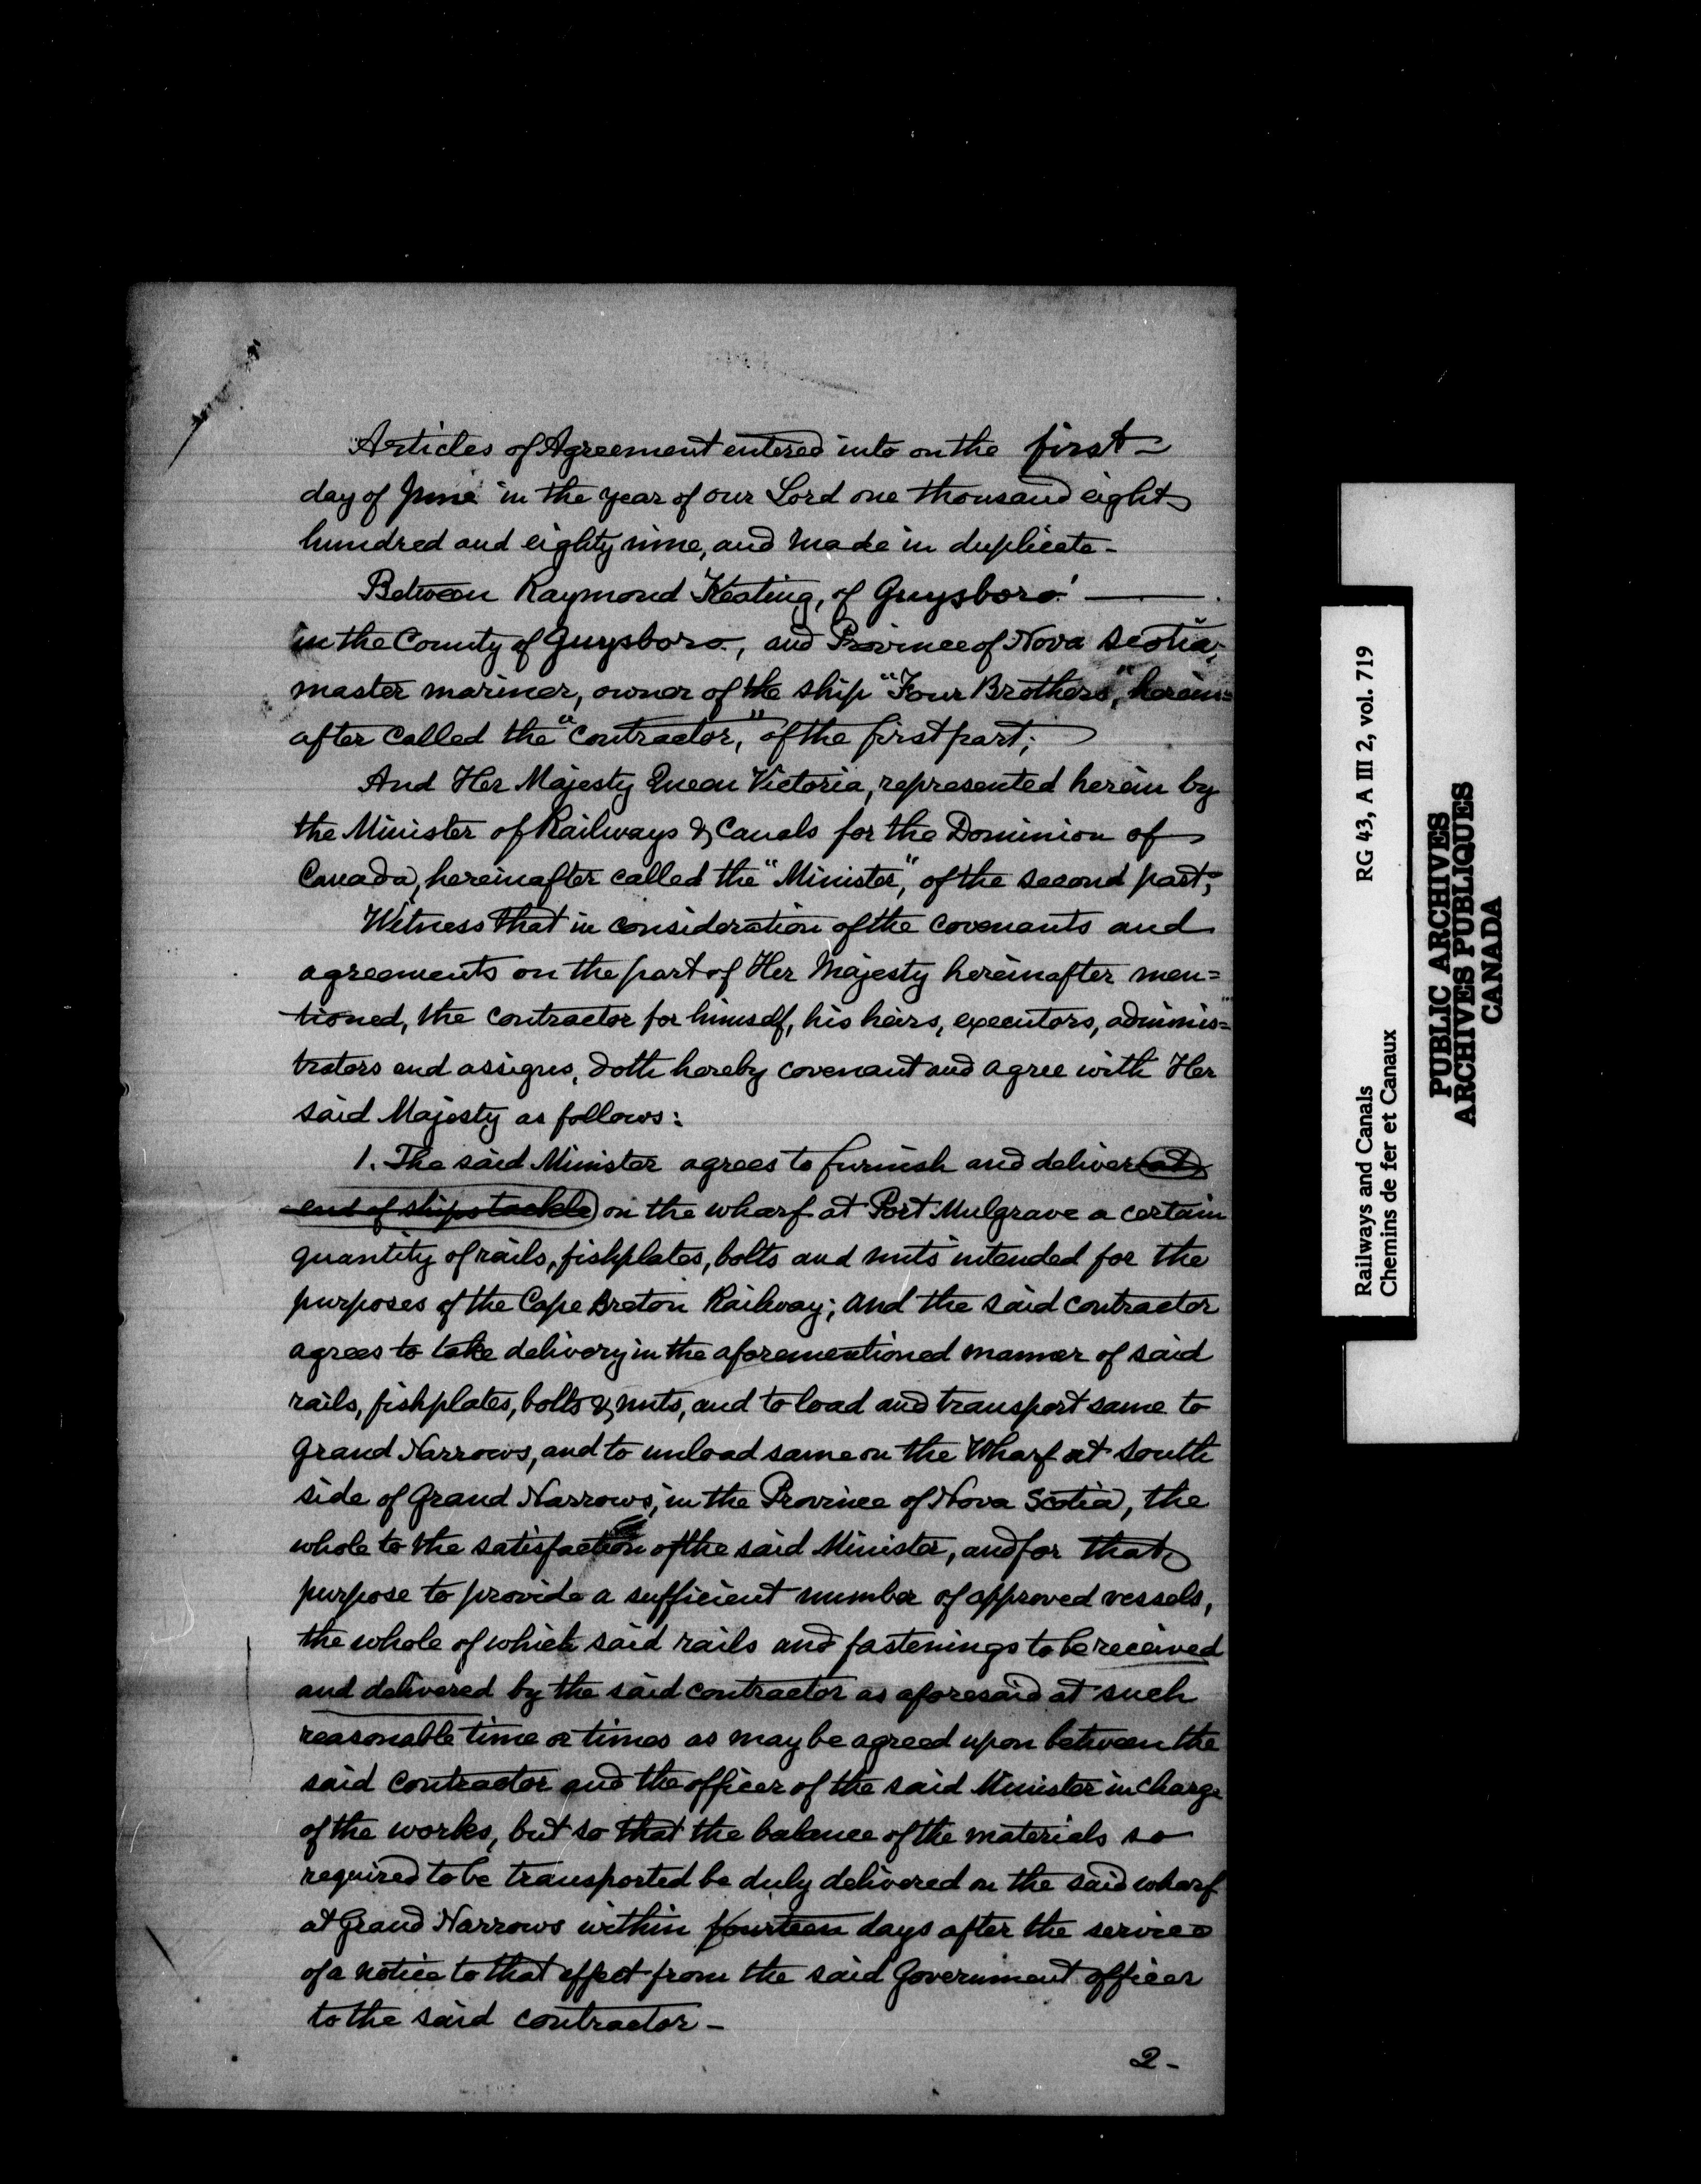 Articles of Agreement entered into on the first
day of June in the year of our Lord one thousand eight
hundred and eighty nine, and made in duplicate -
Between Raymond Keating, of Guysboro'
in the County of Guysboro, and Province of Nova Scotia,
master mariner, owner of the ship "Four Brothers," herein=
after called the "contractor," of the first part;
And Her Majesty Queen Victoria, represented herein by
the Minister of Railways & Canals for the Dominion of
Canada, hereinafter called the "Minister," of the second part;
Witness that in consideration of the covenants and
agreements on the part of Her Majesty hereinafter men=
tioned, the contractor for himself, his heirs, executors, adminis=
trators and assigns, doth hereby covenant and agree with Her
said Majesty as follows:
1. The said Minister agrees to furnish and deliver (at
end of ships tackle) on the wharf at Port Mulgrave a certain
quantity of rails, fishplates, bolts and nuts intended for the
purposes of the Cape Breton Railway; and the said contractor
agrees to take delivery in the aforementioned manner of said
rails, fishplates, bolts & nuts, and to load and transport same to
Grand Narrows, and to unload same on the Wharf at south
side of Grand Narrows, in the Province of Nova Scotia, the
whole to the satisfaction of the said Minister, and for that
purpose to provide a sufficient number of approved vessels,
the whole of which said rails and fastenings to be received
and delivered by the said contractor as aforesaid at such
reasonable time or times as may be agreed upon between the
said contractor and the officer of the said Minister in charge
of the works, but so that the balance of the materials so
required to be transported be duly delivered on the said wharf
at Grand Narrows within fourteen days after the service
of a notice to that effect from the said Government officer
to the said contractor -
2 -
Railways and Canals RG 43, A III 2, vol. 719
Chemins de fer et Canaux
PUBLIC ARCHIVES
ARCHIVES PUBLIQUES
CANADA